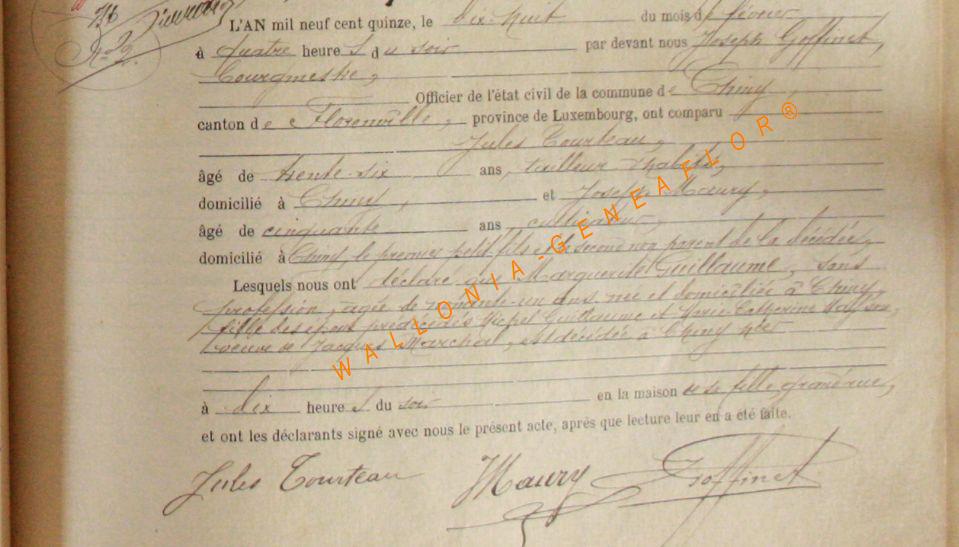 L'AN mil neuf cent quinze, le dix-huit du mois de février
à quatre heures du soir par devant nous Joseph Goffinet,
bourgmestre,
Officier de l'état civil de la commune de Chiny,
canton de Florenville, province de Luxembourg, ont comparu
Jules Tourteau,
âgé de trente-six ans, tailleur d'habits,
domicilié à Chiny, et Joseph Maury,
âgé de cinquante ans cultivateur,
domicilié à Chiny, le premier petit fils et le second non parent de la décédée,
Lesquels nous ont déclaré que Marguerite Guillaume, sans
profession, âgée de ans, née et domiciliée à Chiny,
fille des époux prédécédés Michel Guillaume et Marie-Catherine
veuve de Jacques Marchal, est décédée à Chiny hier
à dix heures du soir en la maison de sa fille, grand'rue,
et ont les déclarants signé avec nous le présent acte, après que lecture leur en a été faite.
Jules Tourteau Maury Goffinet
WALLONIA-GENEAFLOR®